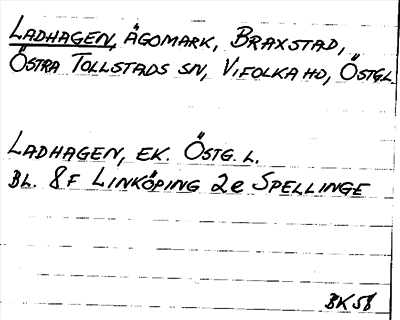 LADHAGEN, ÄGOMARK, BRAXSTAD,
ÖSTRA TOLLSTADS SN, VIFOLKA HD, ÖSTGL
LADHAGEN, EK. ÖSTG. L.
BL. 8F LINKÖPING 2e SPELLINGE
BK58